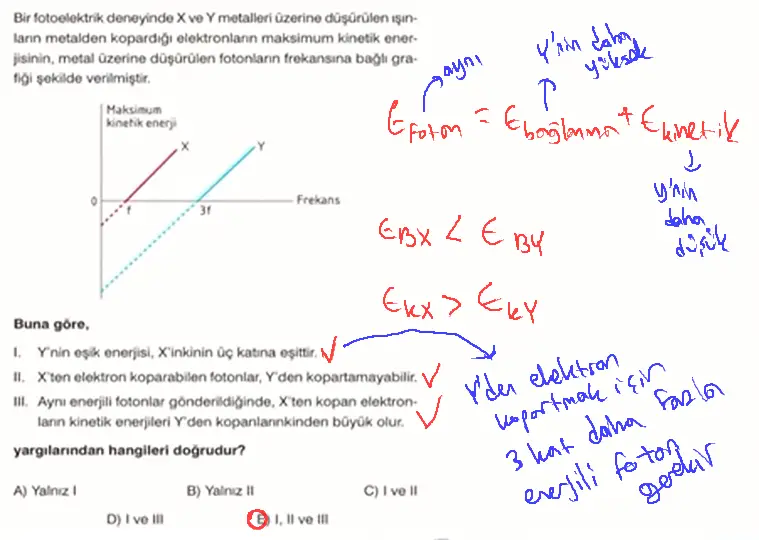 Bir fotoelektrik deneyinde X ve Y metalleri üzerine düşürülen ışın-
ların metalden kopardığı elektronların maksimum kinetik ener-
jisinin, metal üzerine düşürülen fotonların frekansına bağlı gra-
fiği şekilde verilmiştir.
Maksimum
kinetik enerji
X
Y
0
f
3f
Frekans
Buna göre,
I. Y'nin eşik enerjisi, X'inkinin üç katına eşittir.
II. X'ten elektron koparabilen fotonlar, Y'den kopartamayabilir.
III. Aynı enerjili fotonlar gönderildiğinde, X'ten kopan elektron-
ların kinetik enerjileri Y'den kopanlarınkinden büyük olur.
yargılarından hangileri doğrudur?
A) Yalnız I B) Yalnız II C) I ve II
D) I ve III E) I, II ve III
aynı
Y'nin daha
yüksek
EFoton = Ebağlanma + Ekinetik
Y'nin
daha
düşük
EBX < EBY
EkX > EkY
Y'den elektron
kopartmak için
3 kat daha fazla
enerjili foton
gerekir